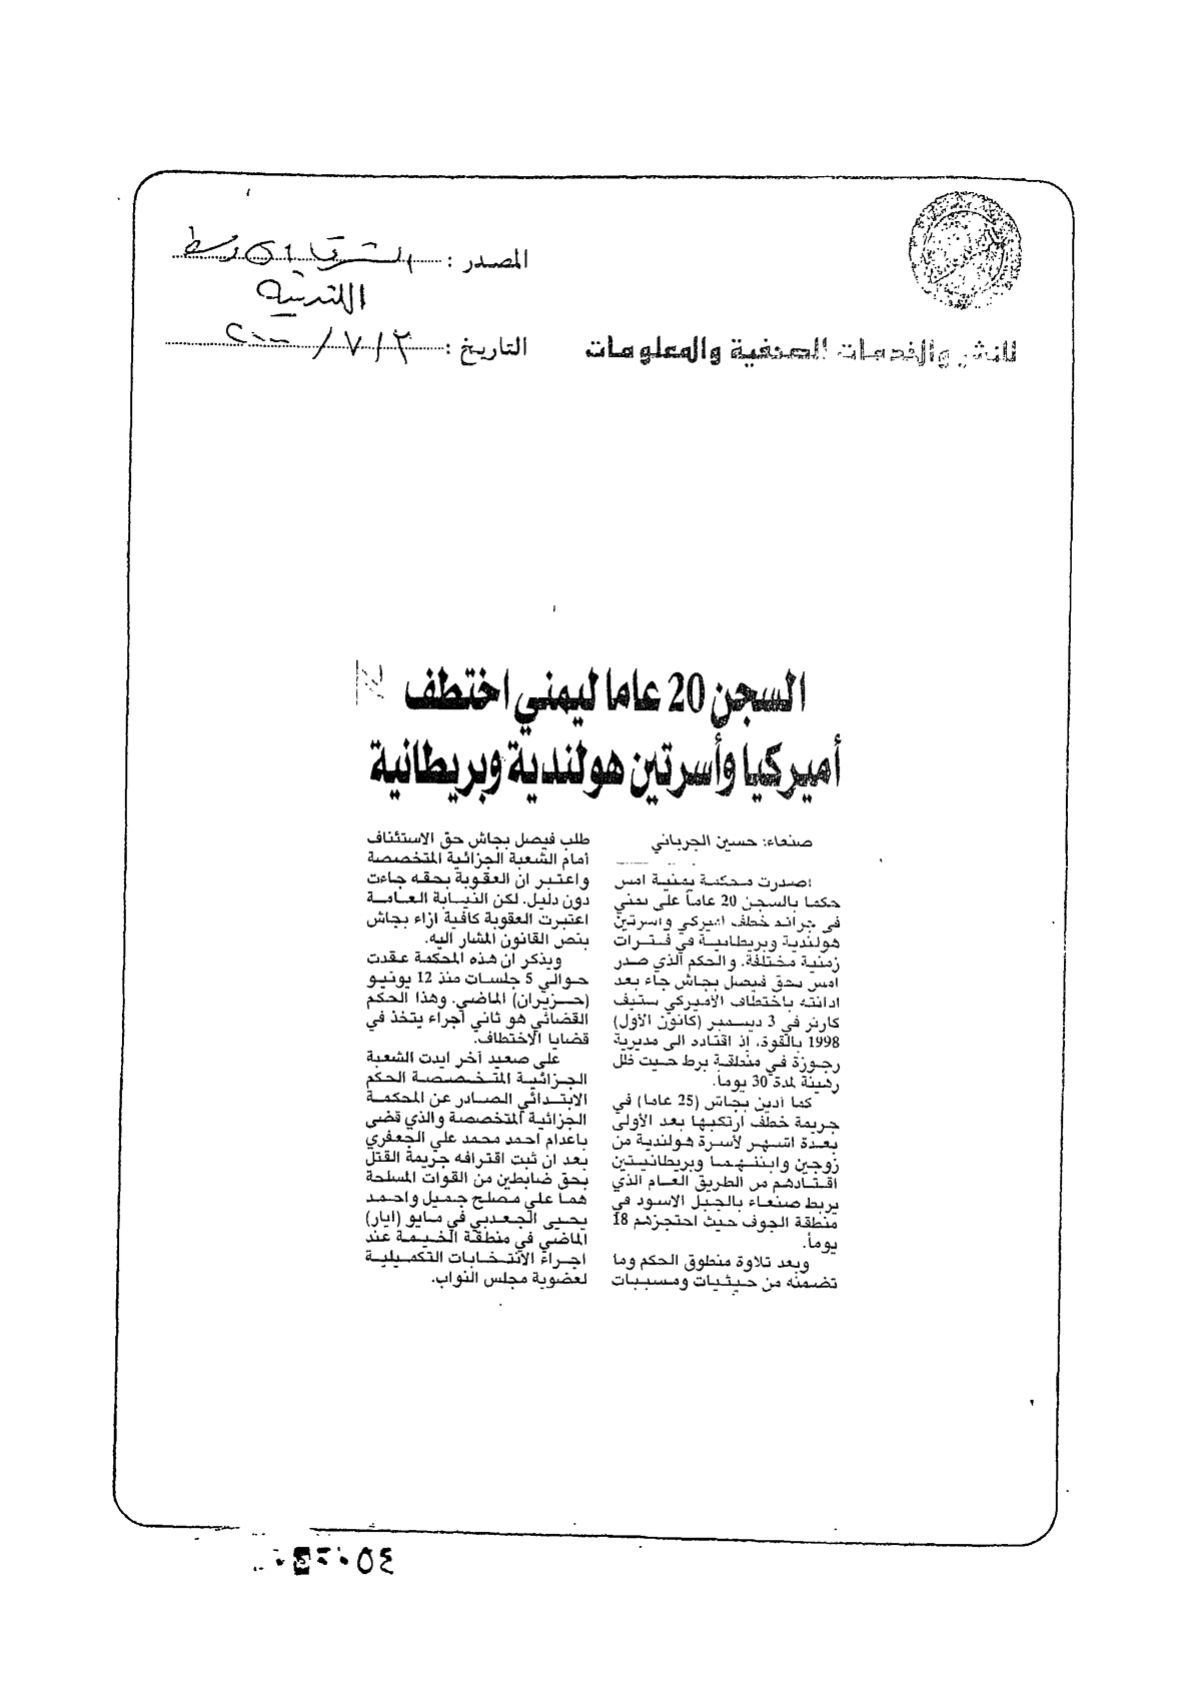 المصدر : الشرق الأوسط
اللندنية
للنشر والخدمات الصحفية والمعلومات
التاريخ : ٣ / ٧ / ٢٠٠٠
السجن 20 عاما ليمني اختطف
أميركيا وأسرتين هولندية وبريطانية
صنعاء: حسين الجرباني
اصدرت محكمة يمنية امس
حكما بالسجن 20 عاماً على يمني
في جرائم خطف اميركي واسرتين
هولندية وبريطانية في فترات
زمنية مختلفة. والحكم الذي صدر
امس بحق فيصل بجاش جاء بعد
ادانته باختطاف الأميركي ستيف
كارنر في 3 ديسمبر (كانون الأول)
1998 بالقوة، إذ اقتاده الى مديرية
رجوزة في منطقة برط حيث ظل
رهينة لمدة 30 يوماً.
كما أدين بجاش (25 عاما) في
جريمة خطف ارتكبها بعد الأولى
بعدة اشهر لأسرة هولندية من
زوجين وابنتهما وبريطانيتين
اقتادهم من الطريق العام الذي
يربط صنعاء بالجبل الاسود في
منطقة الجوف حيث احتجزهم 18
يوماً.
وبعد تلاوة منطوق الحكم وما
تضمنه من حيثيات ومسببات
طلب فيصل بجاش حق الاستئناف
أمام الشعبة الجزائية المتخصصة
واعتبر ان العقوبة بحقه جاءت
دون دليل. لكن النيابة العامة
اعتبرت العقوبة كافية ازاء بجاش
بنص القانون المشار اليه.
ويذكر ان هذه المحكمة عقدت
حوالي 5 جلسات منذ 12 يونيو
(حزيران) الماضي. وهذا الحكم
القضائي هو ثاني اجراء يتخذ في
قضايا الاختطاف.
على صعيد آخر ايدت الشعبة
الجزائية المتخصصة الحكم
الابتدائي الصادر عن المحكمة
الجزائية المتخصصة والذي قضى
باعدام احمد محمد علي الجعفري
بعد ان ثبت اقترافه جريمة القتل
بحق ضابطين من القوات المسلحة
هما علي مصلح جميل واحمد
يحيى الجعدبي في مايو (ايار)
الماضي في منطقة الخيمة عند
اجراء الانتخابات التكميلية
لعضوية مجلس النواب.